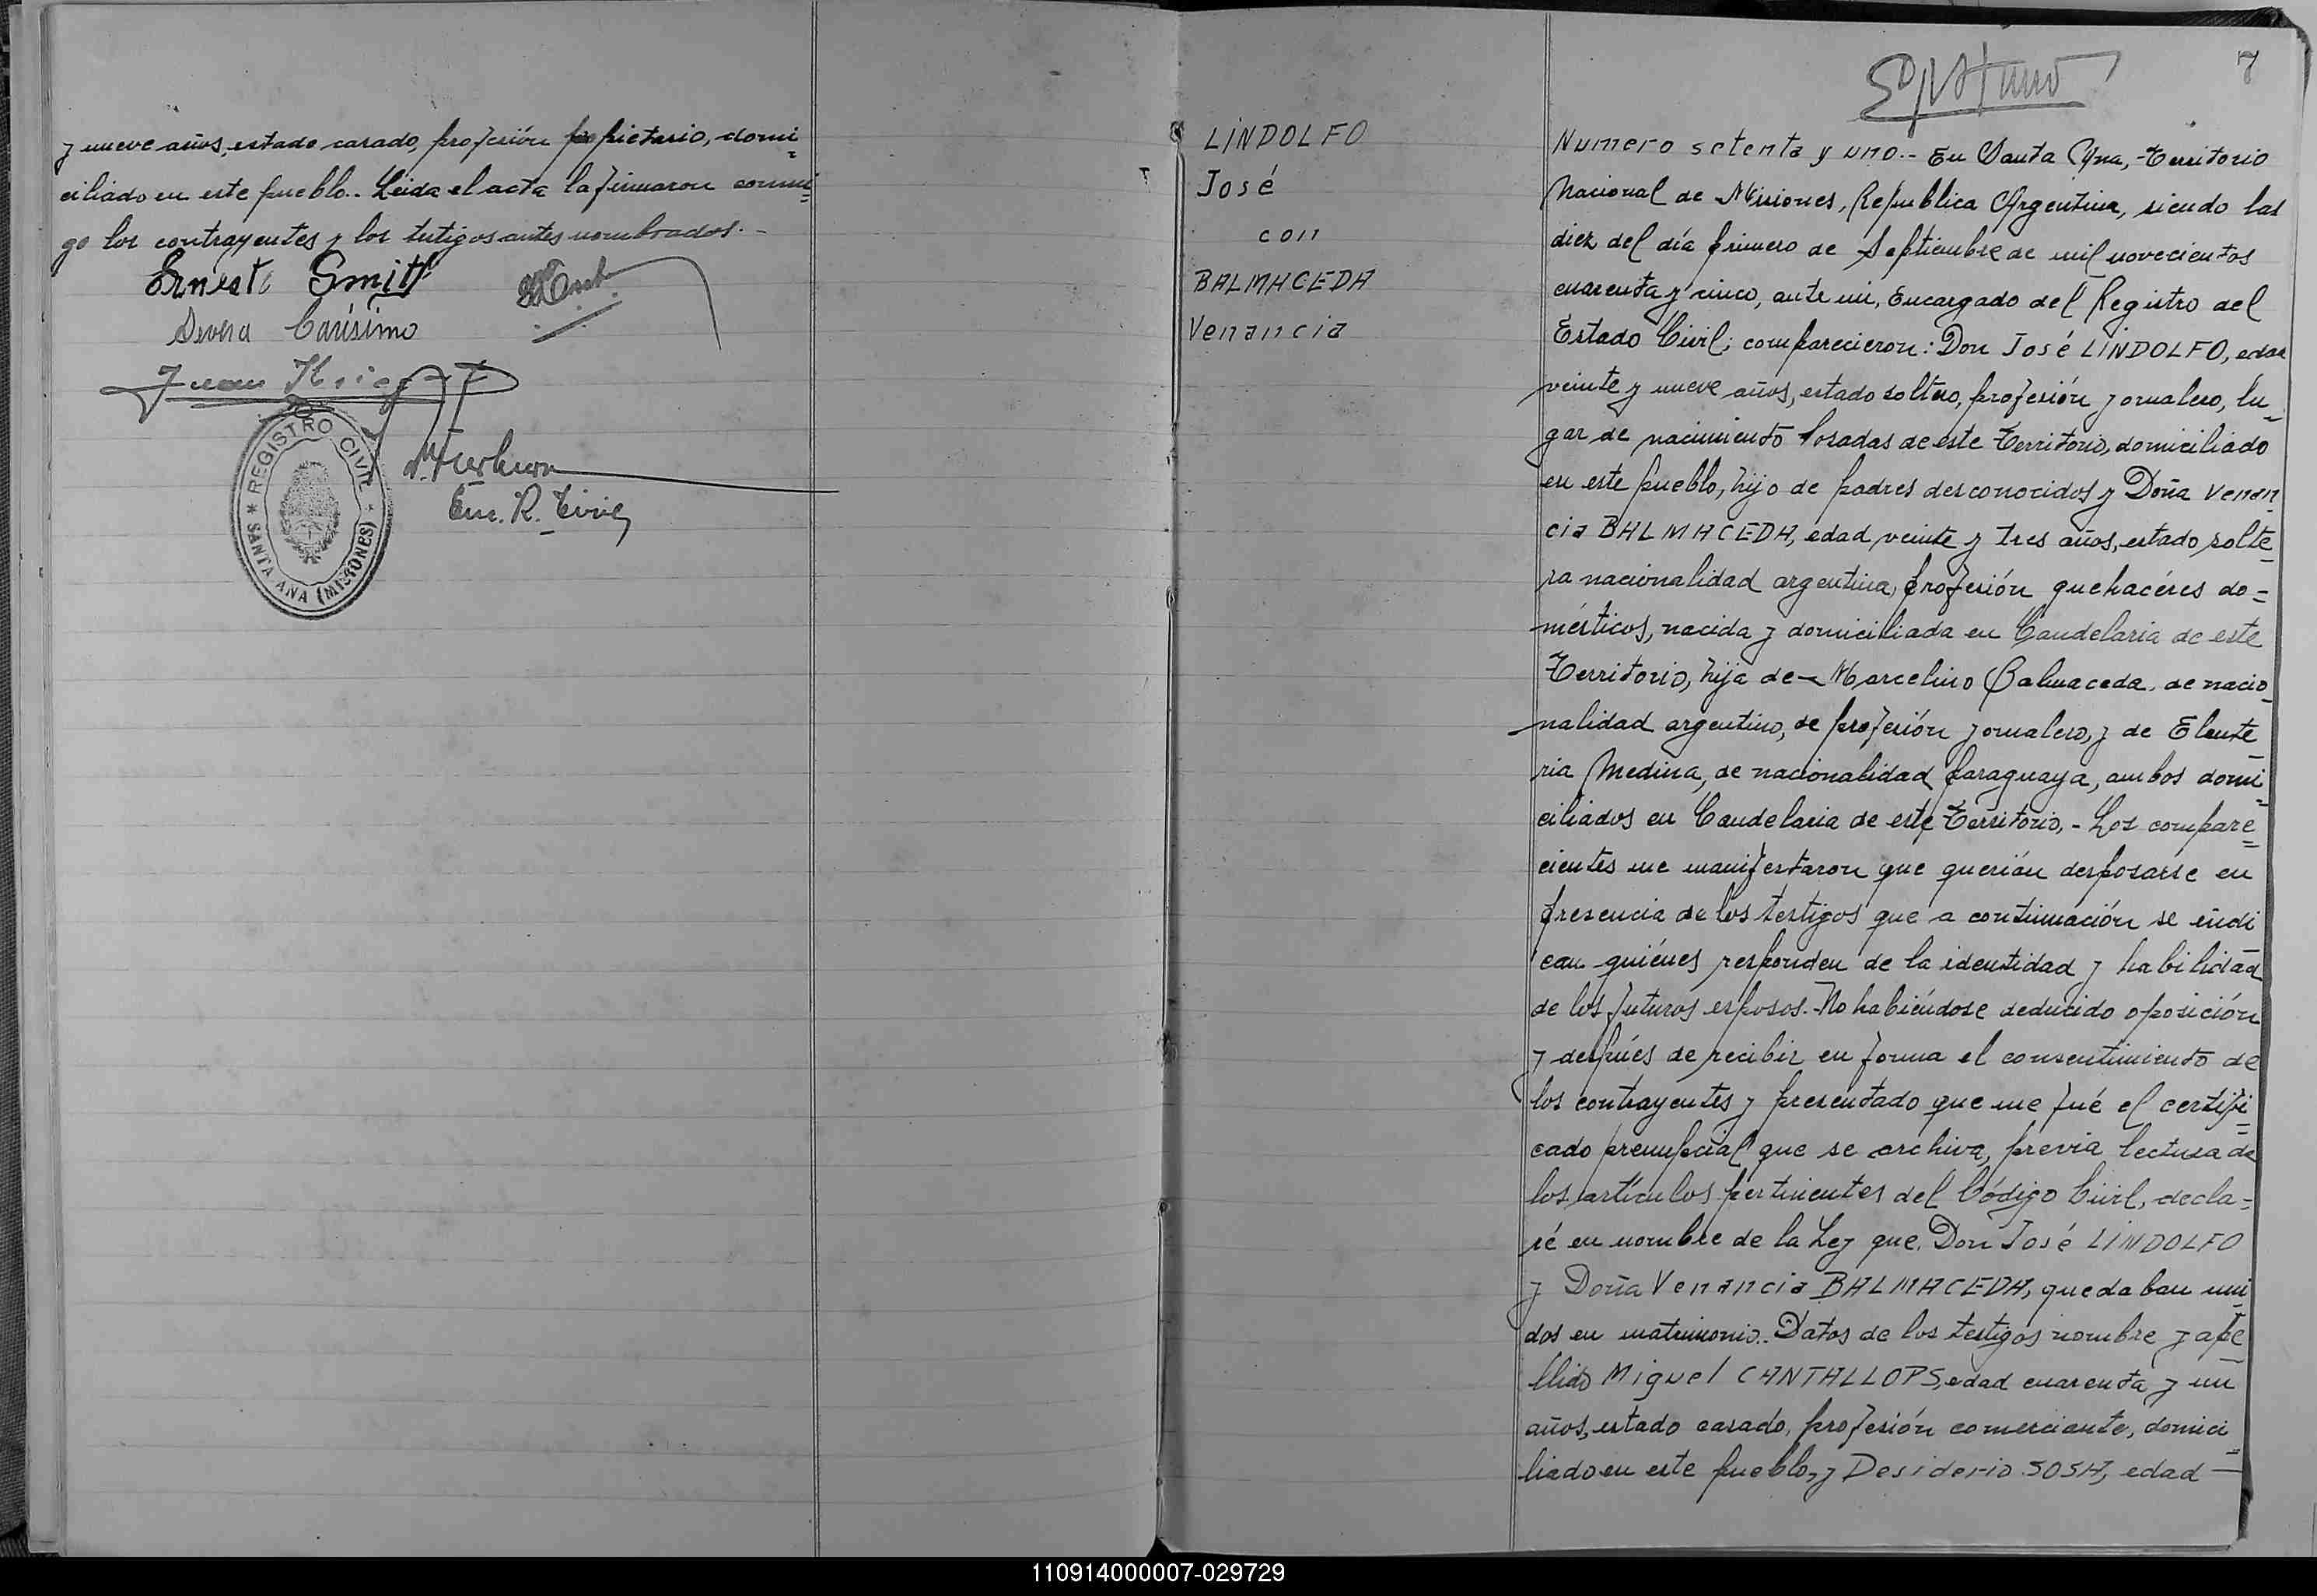 y nueve años, estado casado, profesión propietario, domi=
ciliado en este pueblo.- Leida el acta la firmaron conmi=
go los contrayentes y los testigos antes nombrados.-
Ernesto Smith
Carísimo
Juan
REGISTRO CIVIL
SANTA ANA (MISIONES)
Enc. R. Civil
7
LINDOLFO
José
con
BALMACEDA
Venancia
Numero setenta y uno.- En Santa Ana, Territorio
Nacional de Misiones, Republica Argentina, siendo las
diez del día primero de Septiembre de mil novecientos
cuarenta y cinco, ante mi, Encargado del Registro del
Estado Civil; comparecieron: Don José LINDOLFO, edad
veinte y nueve años, estado soltero, profesión jornalero, lu-
gar de nacimiento Posadas de este Territorio, domiciliado
en este pueblo, hijo de padres desconocidos y Doña Venan-
cia BALMACEDA, edad veinte y tres años, estado solte-
ra nacionalidad argentina, profesión quehacéres do=
mésticos, nacida y domiciliada en Candelaria de este
Territorio, hija de Marcelino Balmaceda, de nacio-
nalidad argentino, de profesión jornalero, y de Eleute-
ria Medina, de nacionalidad paraguaya, ambos domi=
ciliados en Candelaria de este Territorio,- Los compare=
cientes me manifestaron que querían desposarse en
presencia de los testigos que a continuación se indi-
can quiénes responden de la identidad y habilidad
de los futuros esposos.- No habiéndose deducido oposición
y despúes de recibir en forma el consentimiento de
los contrayentes y presentado que me fué el certifi=
cado prenupcial que se archiva, previa lectura de
los artículos pertinentes del Código Civil, decla=
ré en nombre de la Ley que, Don José LINDOLFO
y Doña Venancia BALMACEDA, quedaban uni=
dos en matrimonio.- Datos de los testigos nombre y ape-
llido Miguel CANTALLOPS, edad cuarenta y un
años, estado casado, profesión comerciante, domici=
liado en este pueblo, y Desiderio SOSA, edad —
110914000007-029729